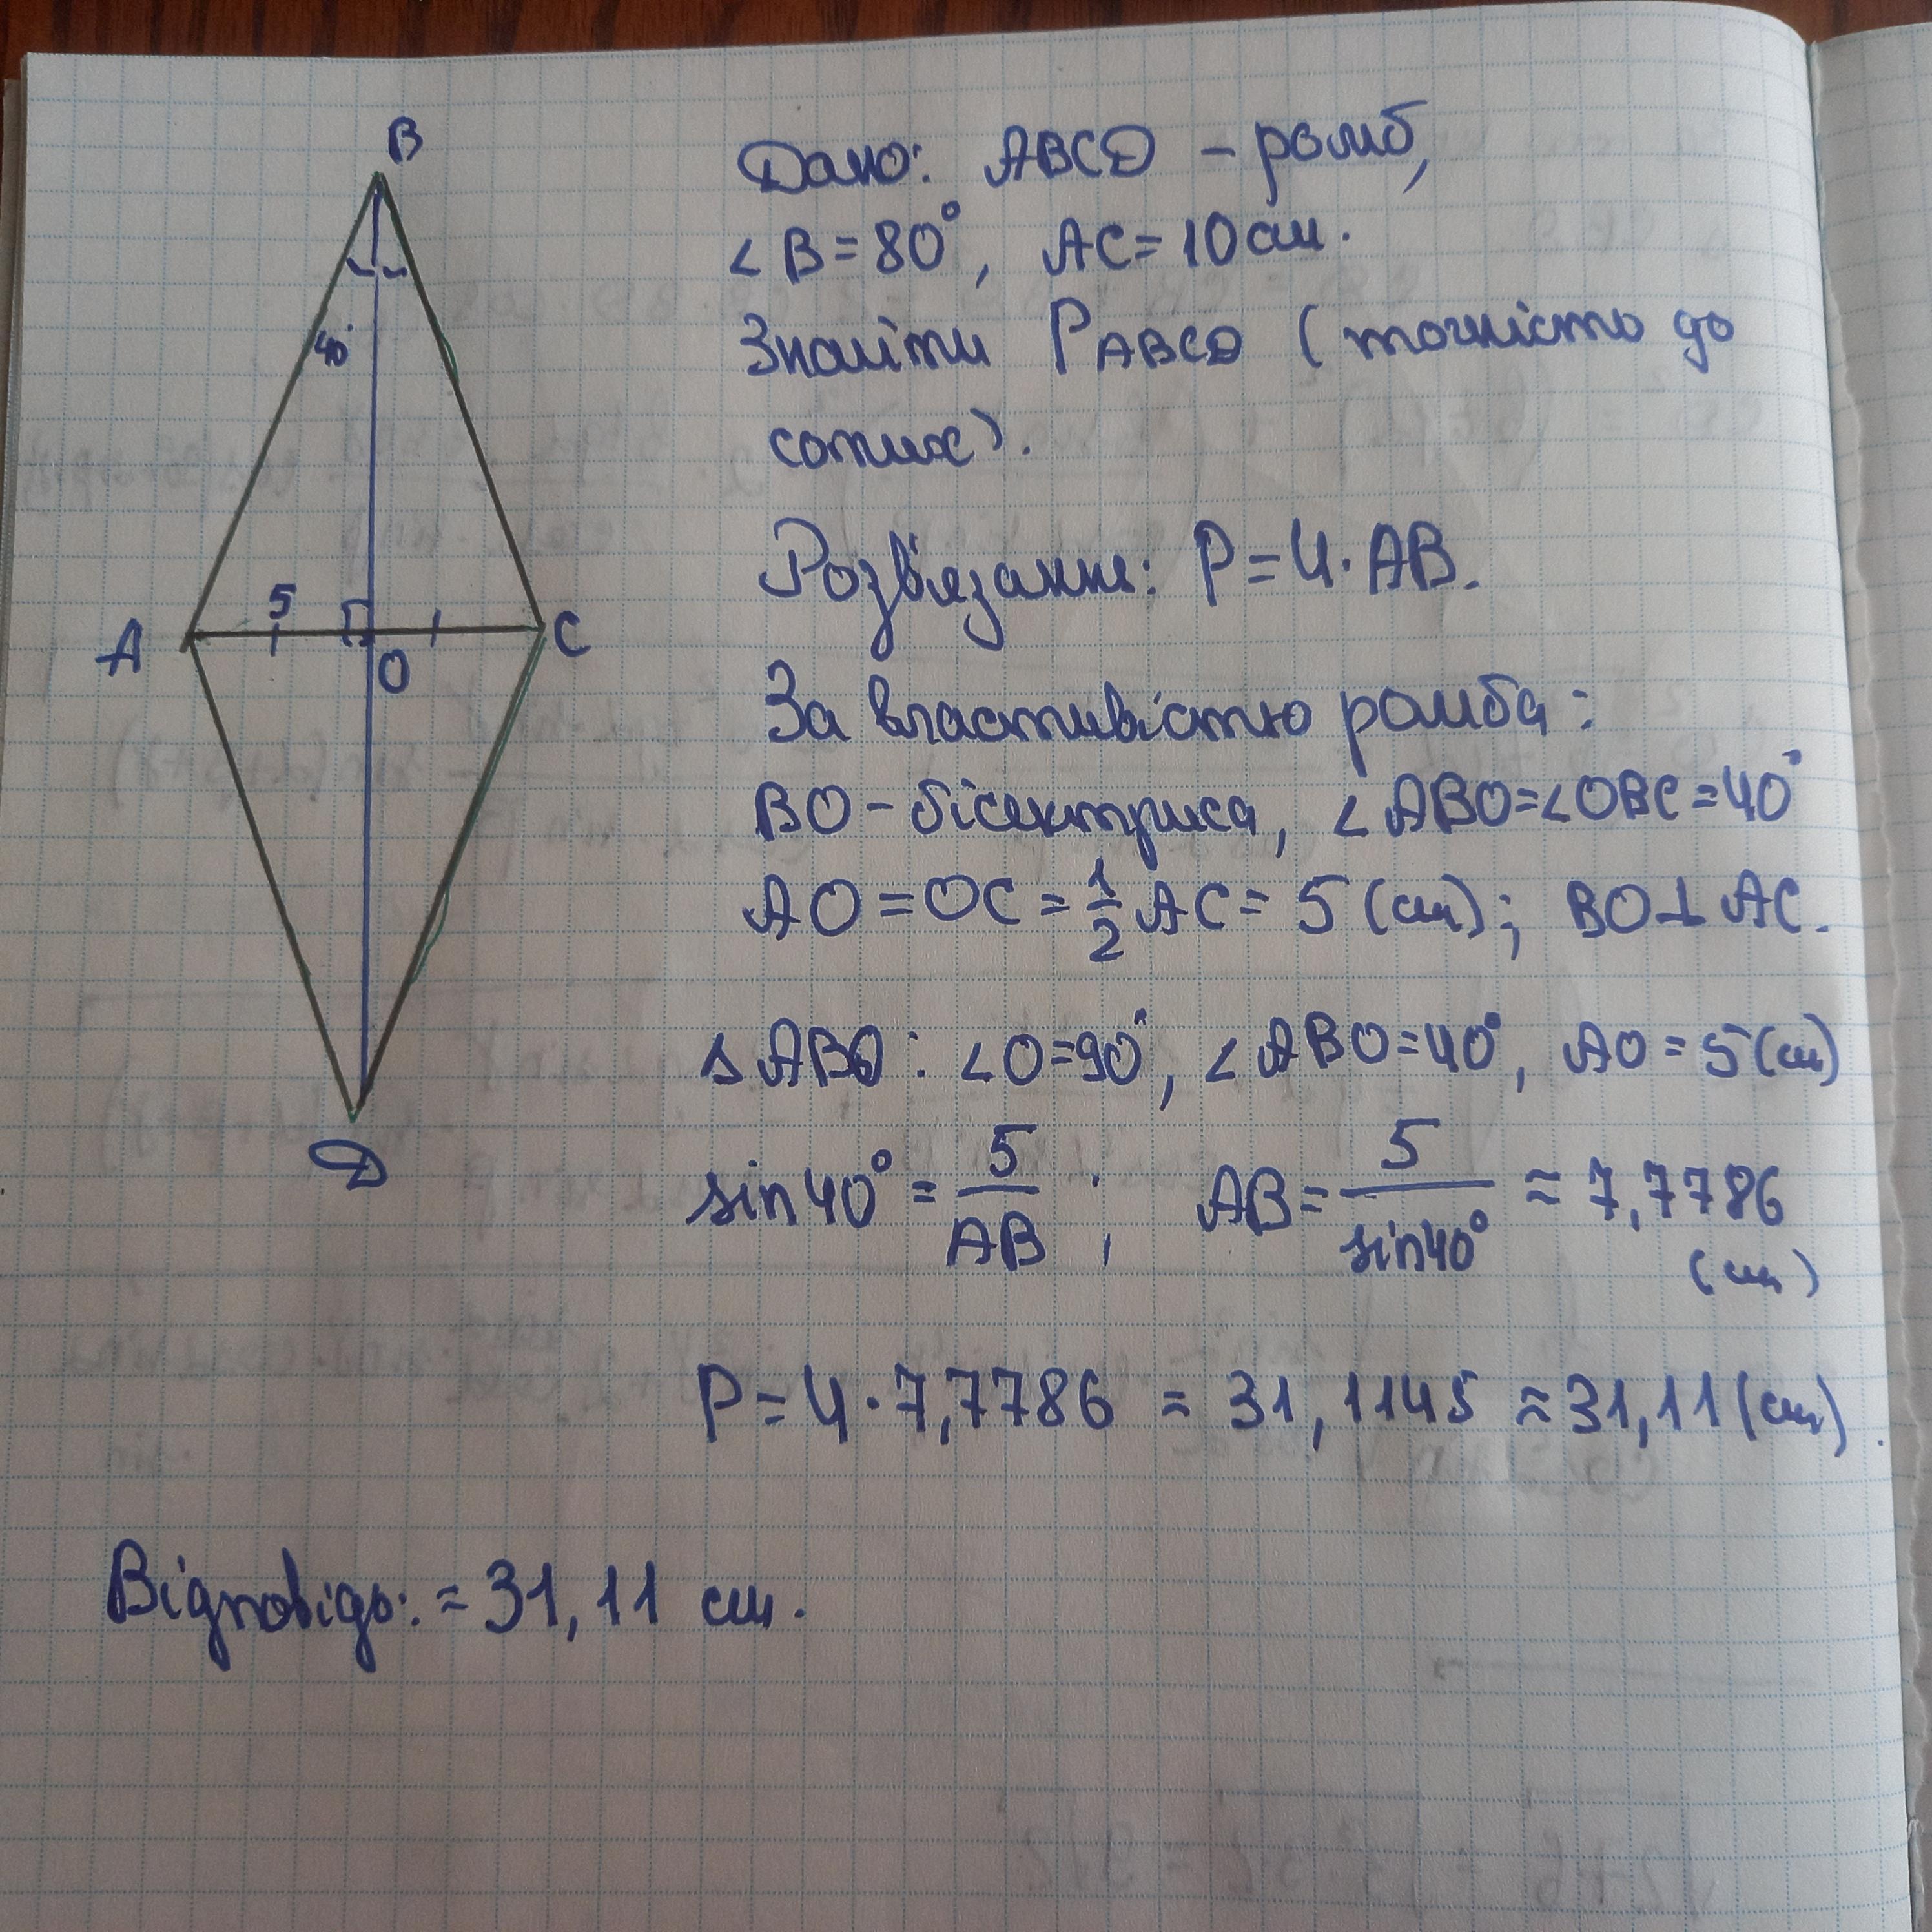 B
40°
5
A
O
C
D
Дано: ABCD – ромб,
∠B=80°, AC=10см.
Знайти P ABCD (точністю до
сотих).
Розв'язання: P=4·AB.
За властивістю ромба:
BO – бісектриса, ∠ABO=∠OBC=40°
AO=OC=1/2 AC=5 (см); BO⊥AC.
△ABO: ∠O=90°, ∠ABO=40°, AO=5(см)
sin40°=5/AB; AB=5/sin40°≈7,7786
(см)
P=4·7,7786≈31,1145≈31,11(см).
Відповідь: ≈31,11 см.